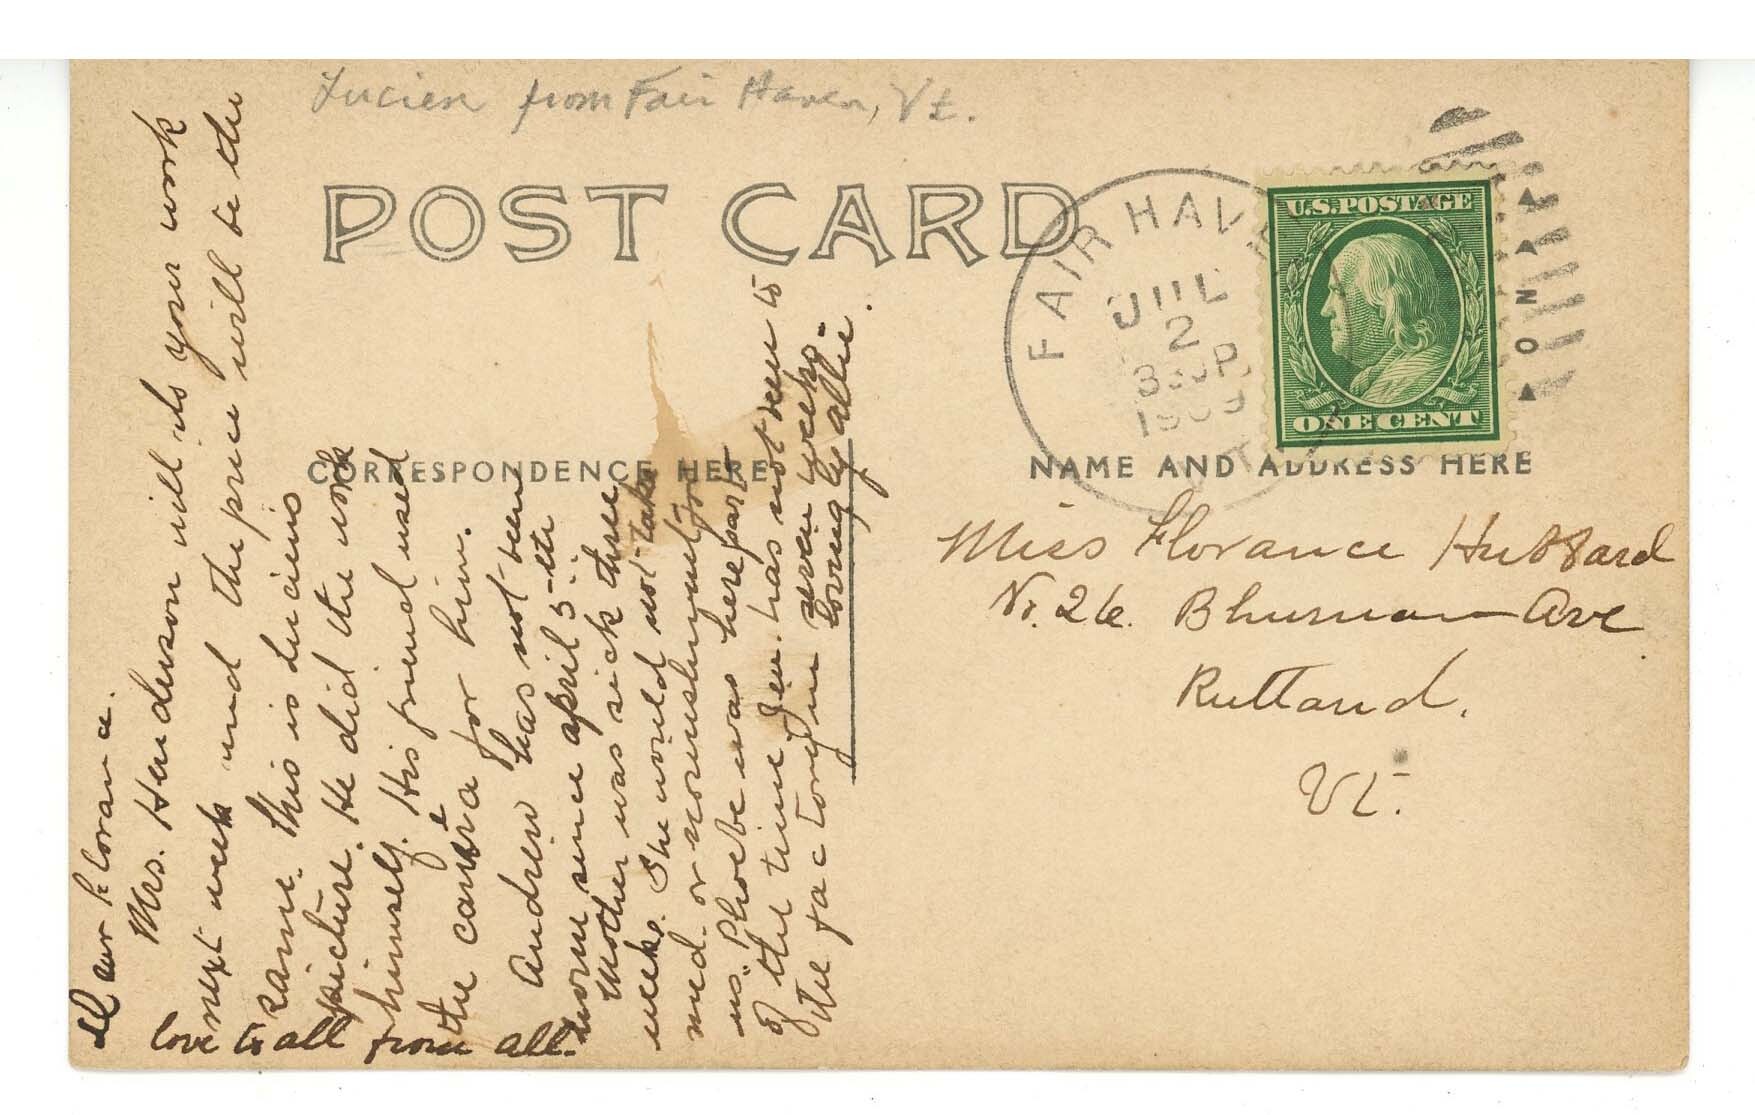 Lucien from Fair Haven, Vt.
POST CARD
FAIR HAVEN
JUL
2
330P
1909
VT
U.S.POSTAGE
ONE CENT
CORRESPONDENCE HERE
NAME AND ADDRESS HERE
Miss Florance Hubbard
No. 26. Ave
Rutland.
Vt.
Dear Florance.
Mrs. Henderson will do your work
next week and the price will be the
same. This is Luciens
picture. He did the work
himself. His friend used
the camera for him.
Andrew has not been
home since april 5-th
Mother was sick three
weeks. She would not take
med. or nourishment for
us. Phoebe was here part
of the time Jen. has not been to
the factory in seven weeks.
lovingly allie.
love to all from all.